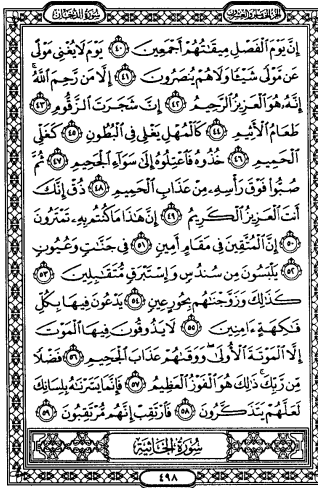 سُورَةُ الدُّخَانِ الجُزءُ الخَامِسُ وَالعِشرُونَ
إِنَّ يَوْمَ ٱلْفَصْلِ مِيقَٰتُهُمْ أَجْمَعِينَ ٤٠ يَوْمَ لَا يُغْنِى مَوْلًى
عَن مَّوْلًى شَيْـًٔا وَلَا هُمْ يُنصَرُونَ ٤١ إِلَّا مَن رَّحِمَ ٱللَّهُ ۚ
إِنَّهُۥ هُوَ ٱلْعَزِيزُ ٱلرَّحِيمُ ٤٢ إِنَّ شَجَرَتَ ٱلزَّقُّومِ ٤٣
طَعَامُ ٱلْأَثِيمِ ٤٤ كَٱلْمُهْلِ يَغْلِى فِى ٱلْبُطُونِ ٤٥ كَغَلْىِ
ٱلْحَمِيمِ ٤٦ خُذُوهُ فَٱعْتِلُوهُ إِلَىٰ سَوَآءِ ٱلْجَحِيمِ ٤٧ ثُمَّ
صُبُّوا۟ فَوْقَ رَأْسِهِۦ مِنْ عَذَابِ ٱلْحَمِيمِ ٤٨ ذُقْ إِنَّكَ
أَنتَ ٱلْعَزِيزُ ٱلْكَرِيمُ ٤٩ إِنَّ هَٰذَا مَا كُنتُم بِهِۦ تَمْتَرُونَ
٥٠ إِنَّ ٱلْمُتَّقِينَ فِى مَقَامٍ أَمِينٍ ٥١ فِى جَنَّٰتٍ وَعُيُونٍ
٥٢ يَلْبَسُونَ مِن سُندُسٍ وَإِسْتَبْرَقٍ مُّتَقَٰبِلِينَ ٥٣
كَذَٰلِكَ وَزَوَّجْنَٰهُم بِحُورٍ عِينٍ ٥٤ يَدْعُونَ فِيهَا بِكُلِّ
فَٰكِهَةٍ ءَامِنِينَ ٥٥ لَا يَذُوقُونَ فِيهَا ٱلْمَوْتَ
إِلَّا ٱلْمَوْتَةَ ٱلْأُولَىٰ ۖ وَوَقَىٰهُمْ عَذَابَ ٱلْجَحِيمِ ٥٦ فَضْلًا
مِّن رَّبِّكَ ۚ ذَٰلِكَ هُوَ ٱلْفَوْزُ ٱلْعَظِيمُ ٥٧ فَإِنَّمَا يَسَّرْنَٰهُ بِلِسَانِكَ
لَعَلَّهُمْ يَتَذَكَّرُونَ ٥٨ فَٱرْتَقِبْ إِنَّهُم مُّرْتَقِبُونَ ٥٩
سُورَةُ الجَاثِيَةِ
٤٩٨